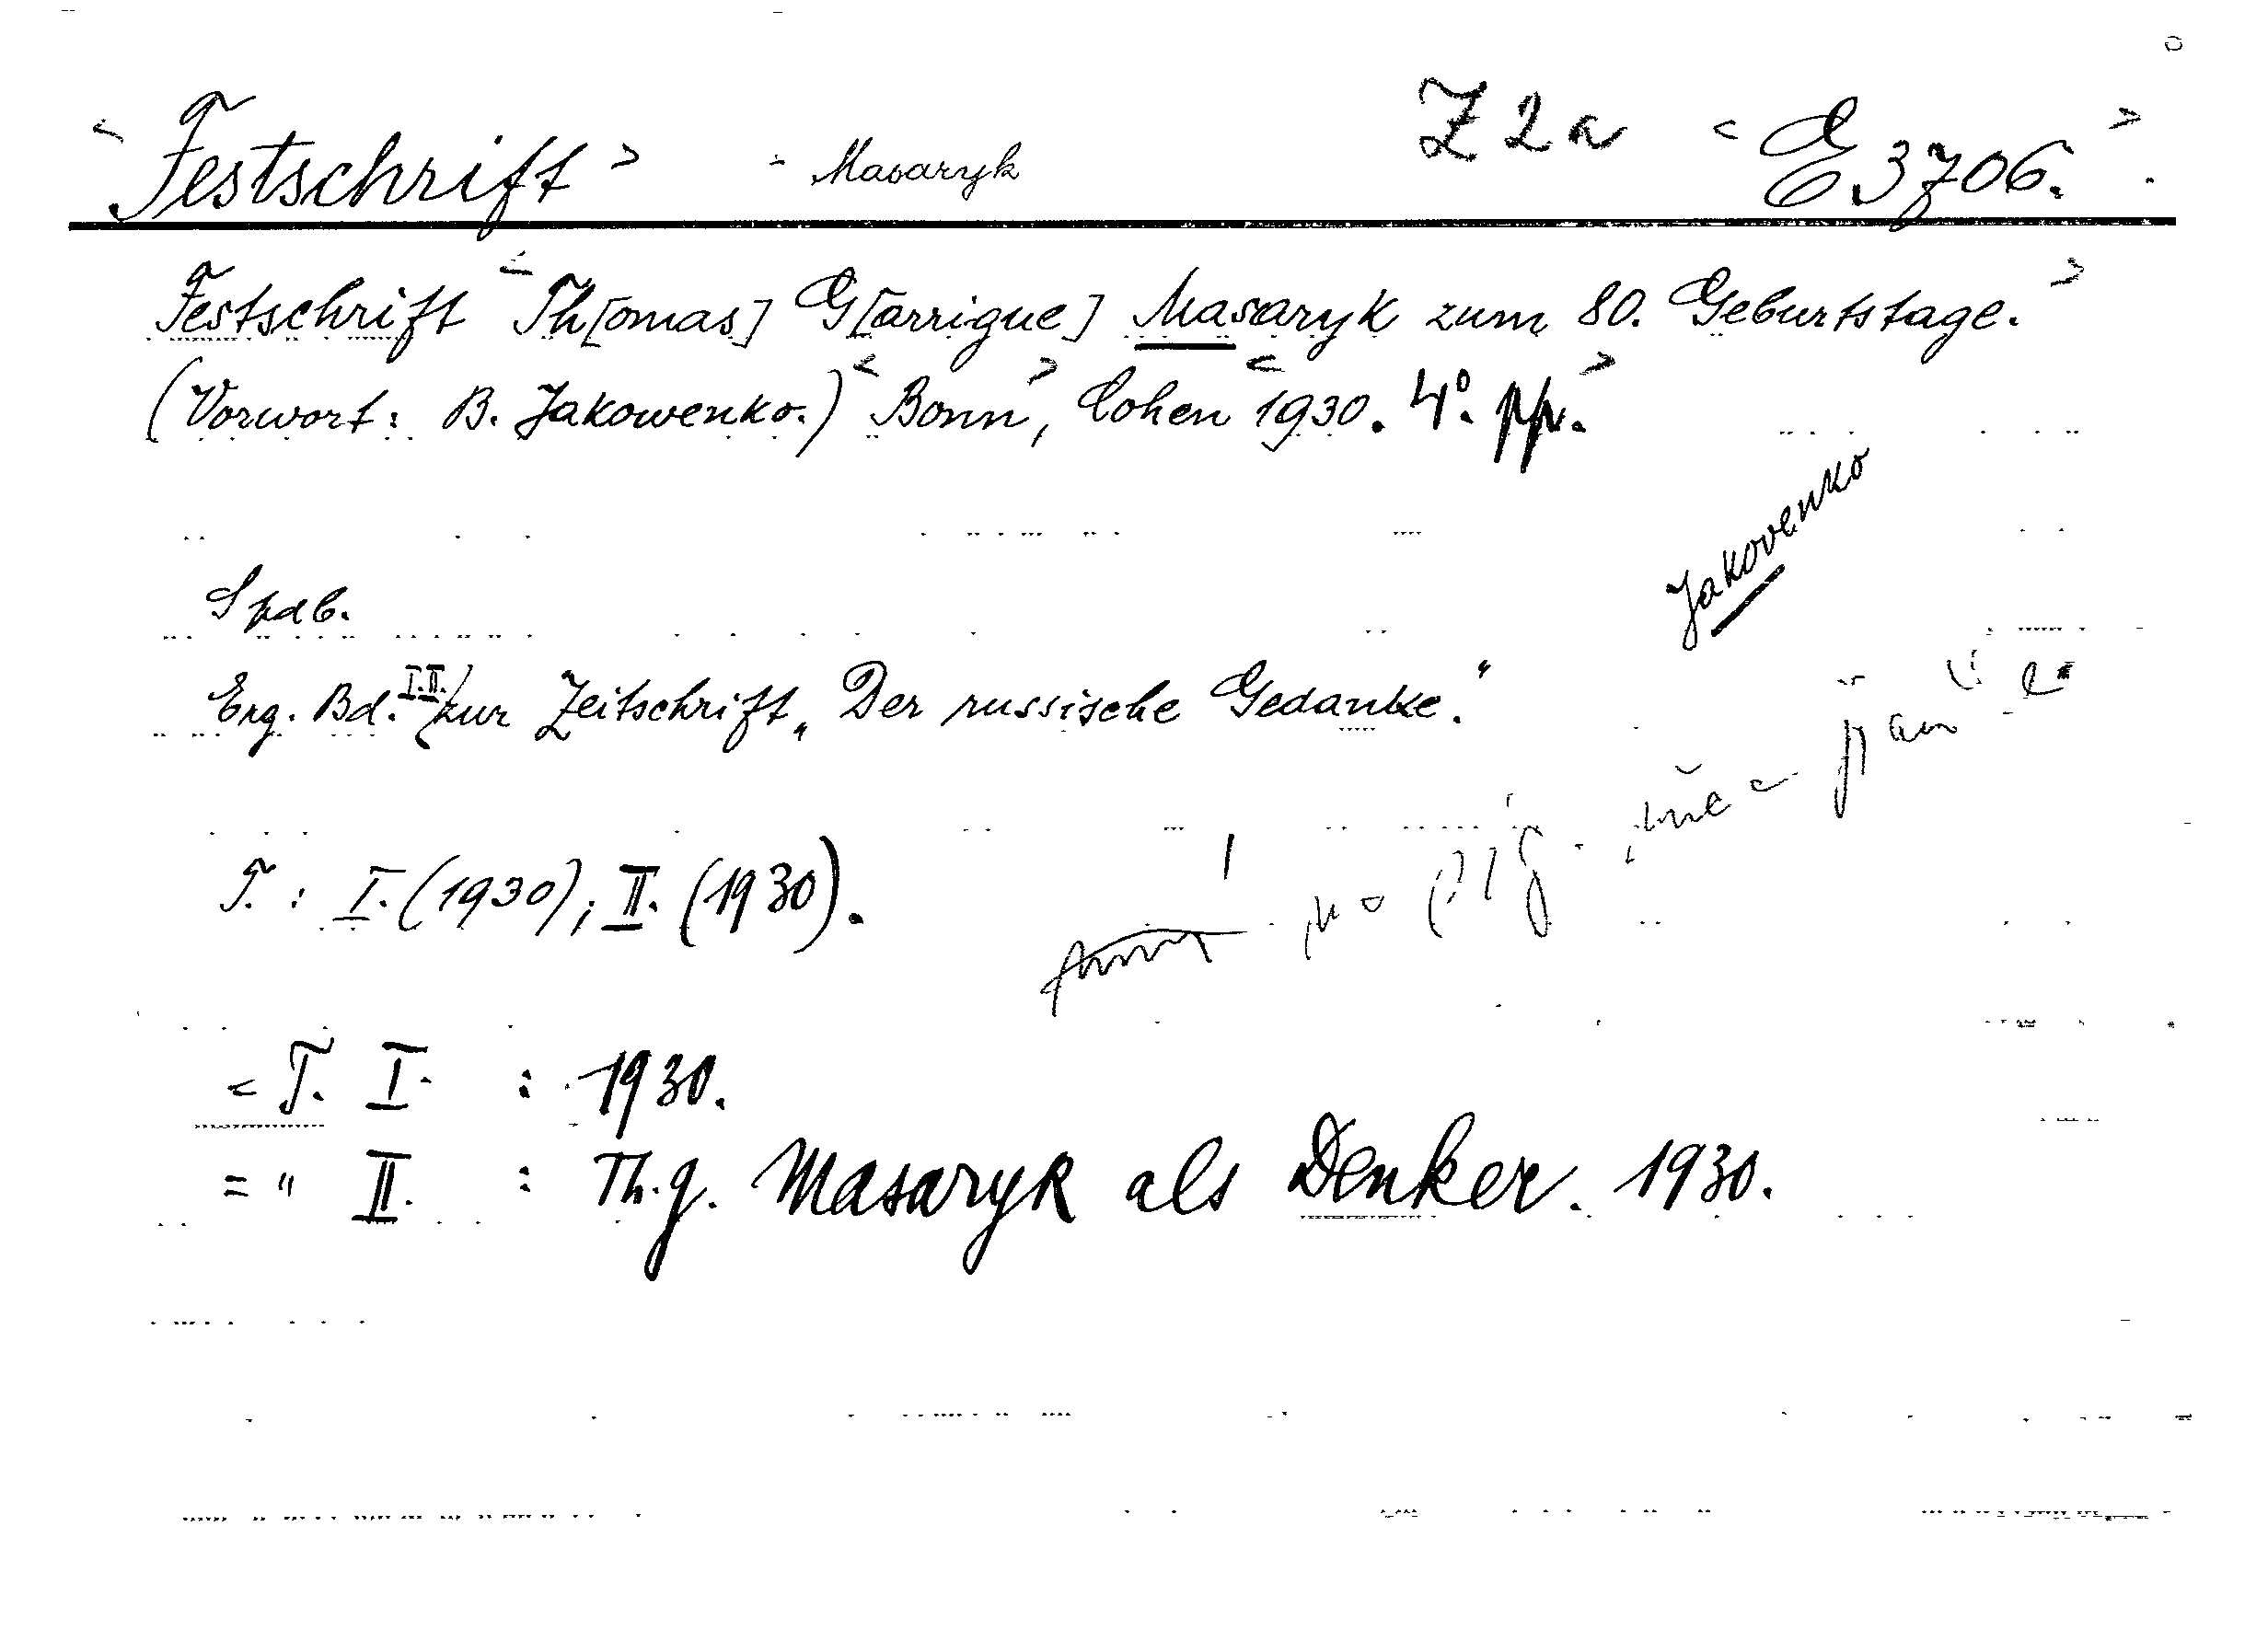 < Festschrift > - Masaryk Z 2 a < E 3706. >
Festschrift < Th[omas] G[arrigue] Masaryk zum 80. Geburtstage. >
(Vorwort: B. Jakowenko.) < Bonn >, Cohen < 1930. 4°. >
Jakovenko
Erg. Bd. I.II. zur Zeitschrift „Der russische Gedanke."
T. : I. (1930); II. (1930).
= T. I. : 1930.
= " II. : Th. G. Masaryk als Denker. 1930.